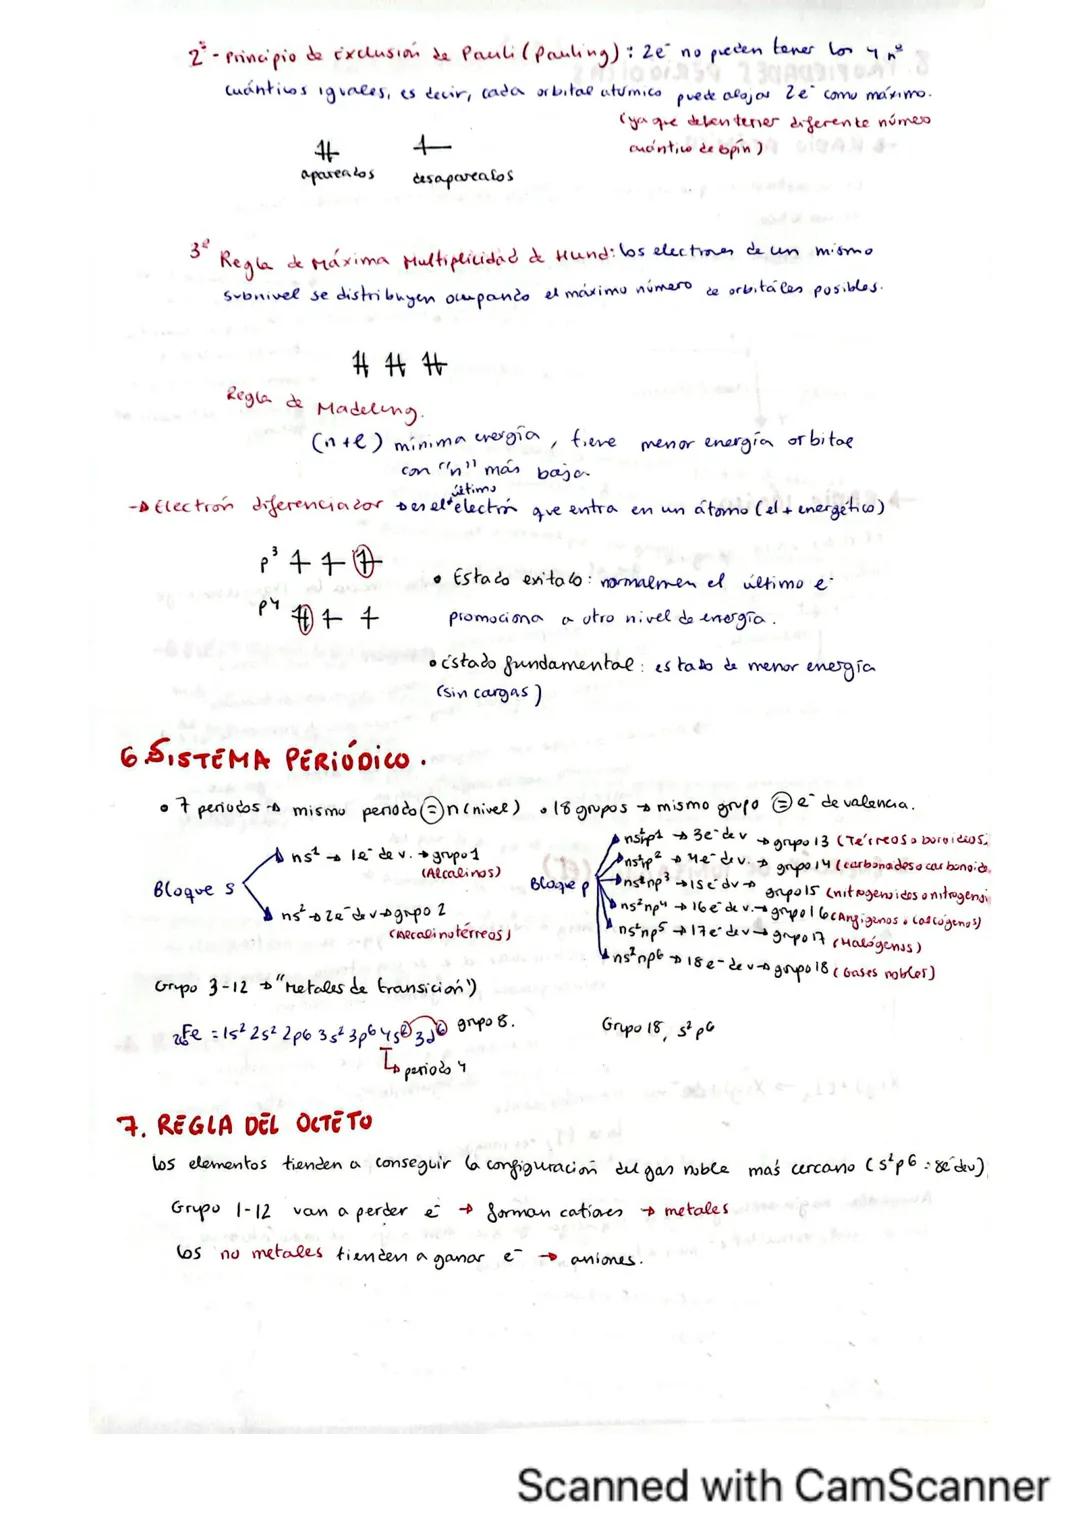 2º- Principio de Exclusión de Pauli (Pauling): 2e⁻ no pueden tener los 4 nº
cuánticos iguales, es decir, cada orbital atómico puede alojar 2e⁻ como máximo.
(ya que deben tener diferente número
cuántico de spin)
apareados desapareados
3º Regla de Máxima Multiplicidad de Hund: los electrones de un mismo
subnivel se distribuyen ocupando el máximo número de orbitales posibles.
Regla de Madelung.
(n+l) mínima energía, tiene menor energía orbital
con "n" más baja.
→ Electrón diferenciador → es el último electrón que entra en un átomo (el + energético)
p³
• Estado exitado: normalmen el último e⁻
p⁴
promociona a otro nivel de energía.
• Estado fundamental: estado de menor energía
(sin cargas)
6. SISTEMA PERIÓDICO.
• 7 periodos → mismo periodo = n (nivel) • 18 grupos → mismo grupo = e⁻ de valencia.
Bloque s
ns¹ → 1e⁻ de v. → grupo 1
(Alcalinos)
ns² → 2e⁻ de v → grupo 2
(Alcalinotérreos)
Bloque p
ns²p¹ → 3e⁻ de v → grupo 13 (Térreos o boroideos.
ns²p² → 4e⁻ de v. → grupo 14 (carbonoides o carbonoid.
ns²np³ → 15e⁻ dv → grupo 15 (nitrogenoides o nitrogensi
ns²np⁴ → 16e⁻ de v. → grupo 16 (Anfígenos o calcógenos)
ns²np⁵ → 17e⁻ de v → grupo 17 (Halógenos)
ns²np6 → 18e- de v → grupo 18 (Gases nobles)
Grupo 3-12 → "Metales de transición")
₂₆Fe = 1s² 2s² 2p6 3s² 3p6 4s② 3d⑥ grupo 8.
→ periodo 4
Grupo 18, s² p6
7. REGLA DEL OCTETO
Los elementos tienden a conseguir la configuración del gas noble más cercano (s²p6: 8e⁻dev)
Grupo 1-12 van a perder e⁻ → forman cationes → metales
Los no metales tienden a ganar e⁻ → aniones.
Scanned with CamScanner